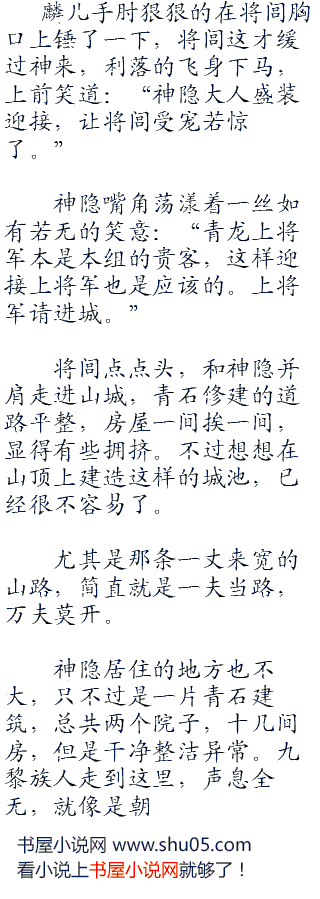 麟儿手肘狠狠的在将闾胸
口上锤了一下，将闾这才缓
过神来，利落的飞身下马，
上前笑道：“神隐大人盛装
迎接，让将闾受宠若惊
了。”
神隐嘴角荡漾着一丝如
有若无的笑意：“青龙上将
军本是本组的贵客，这样迎
接上将军也是应该的。上将
军请进城。”
将闾点点头，和神隐并
肩走进山城，青石修建的道
路平整，房屋一间挨一间，
显得有些拥挤。不过想想在
山顶上建造这样的城池，已
经很不容易了。
尤其是那条一丈来宽的
山路，简直就是一夫当路，
万夫莫开。
神隐居住的地方也不
大，只不过是一片青石建
筑，总共两个院子，十几间
房，但是干净整洁异常。九
黎族人走到这里，声息全
无，就像是朝
书屋小说网 www.shu05.com
看小说上书屋小说网就够了！